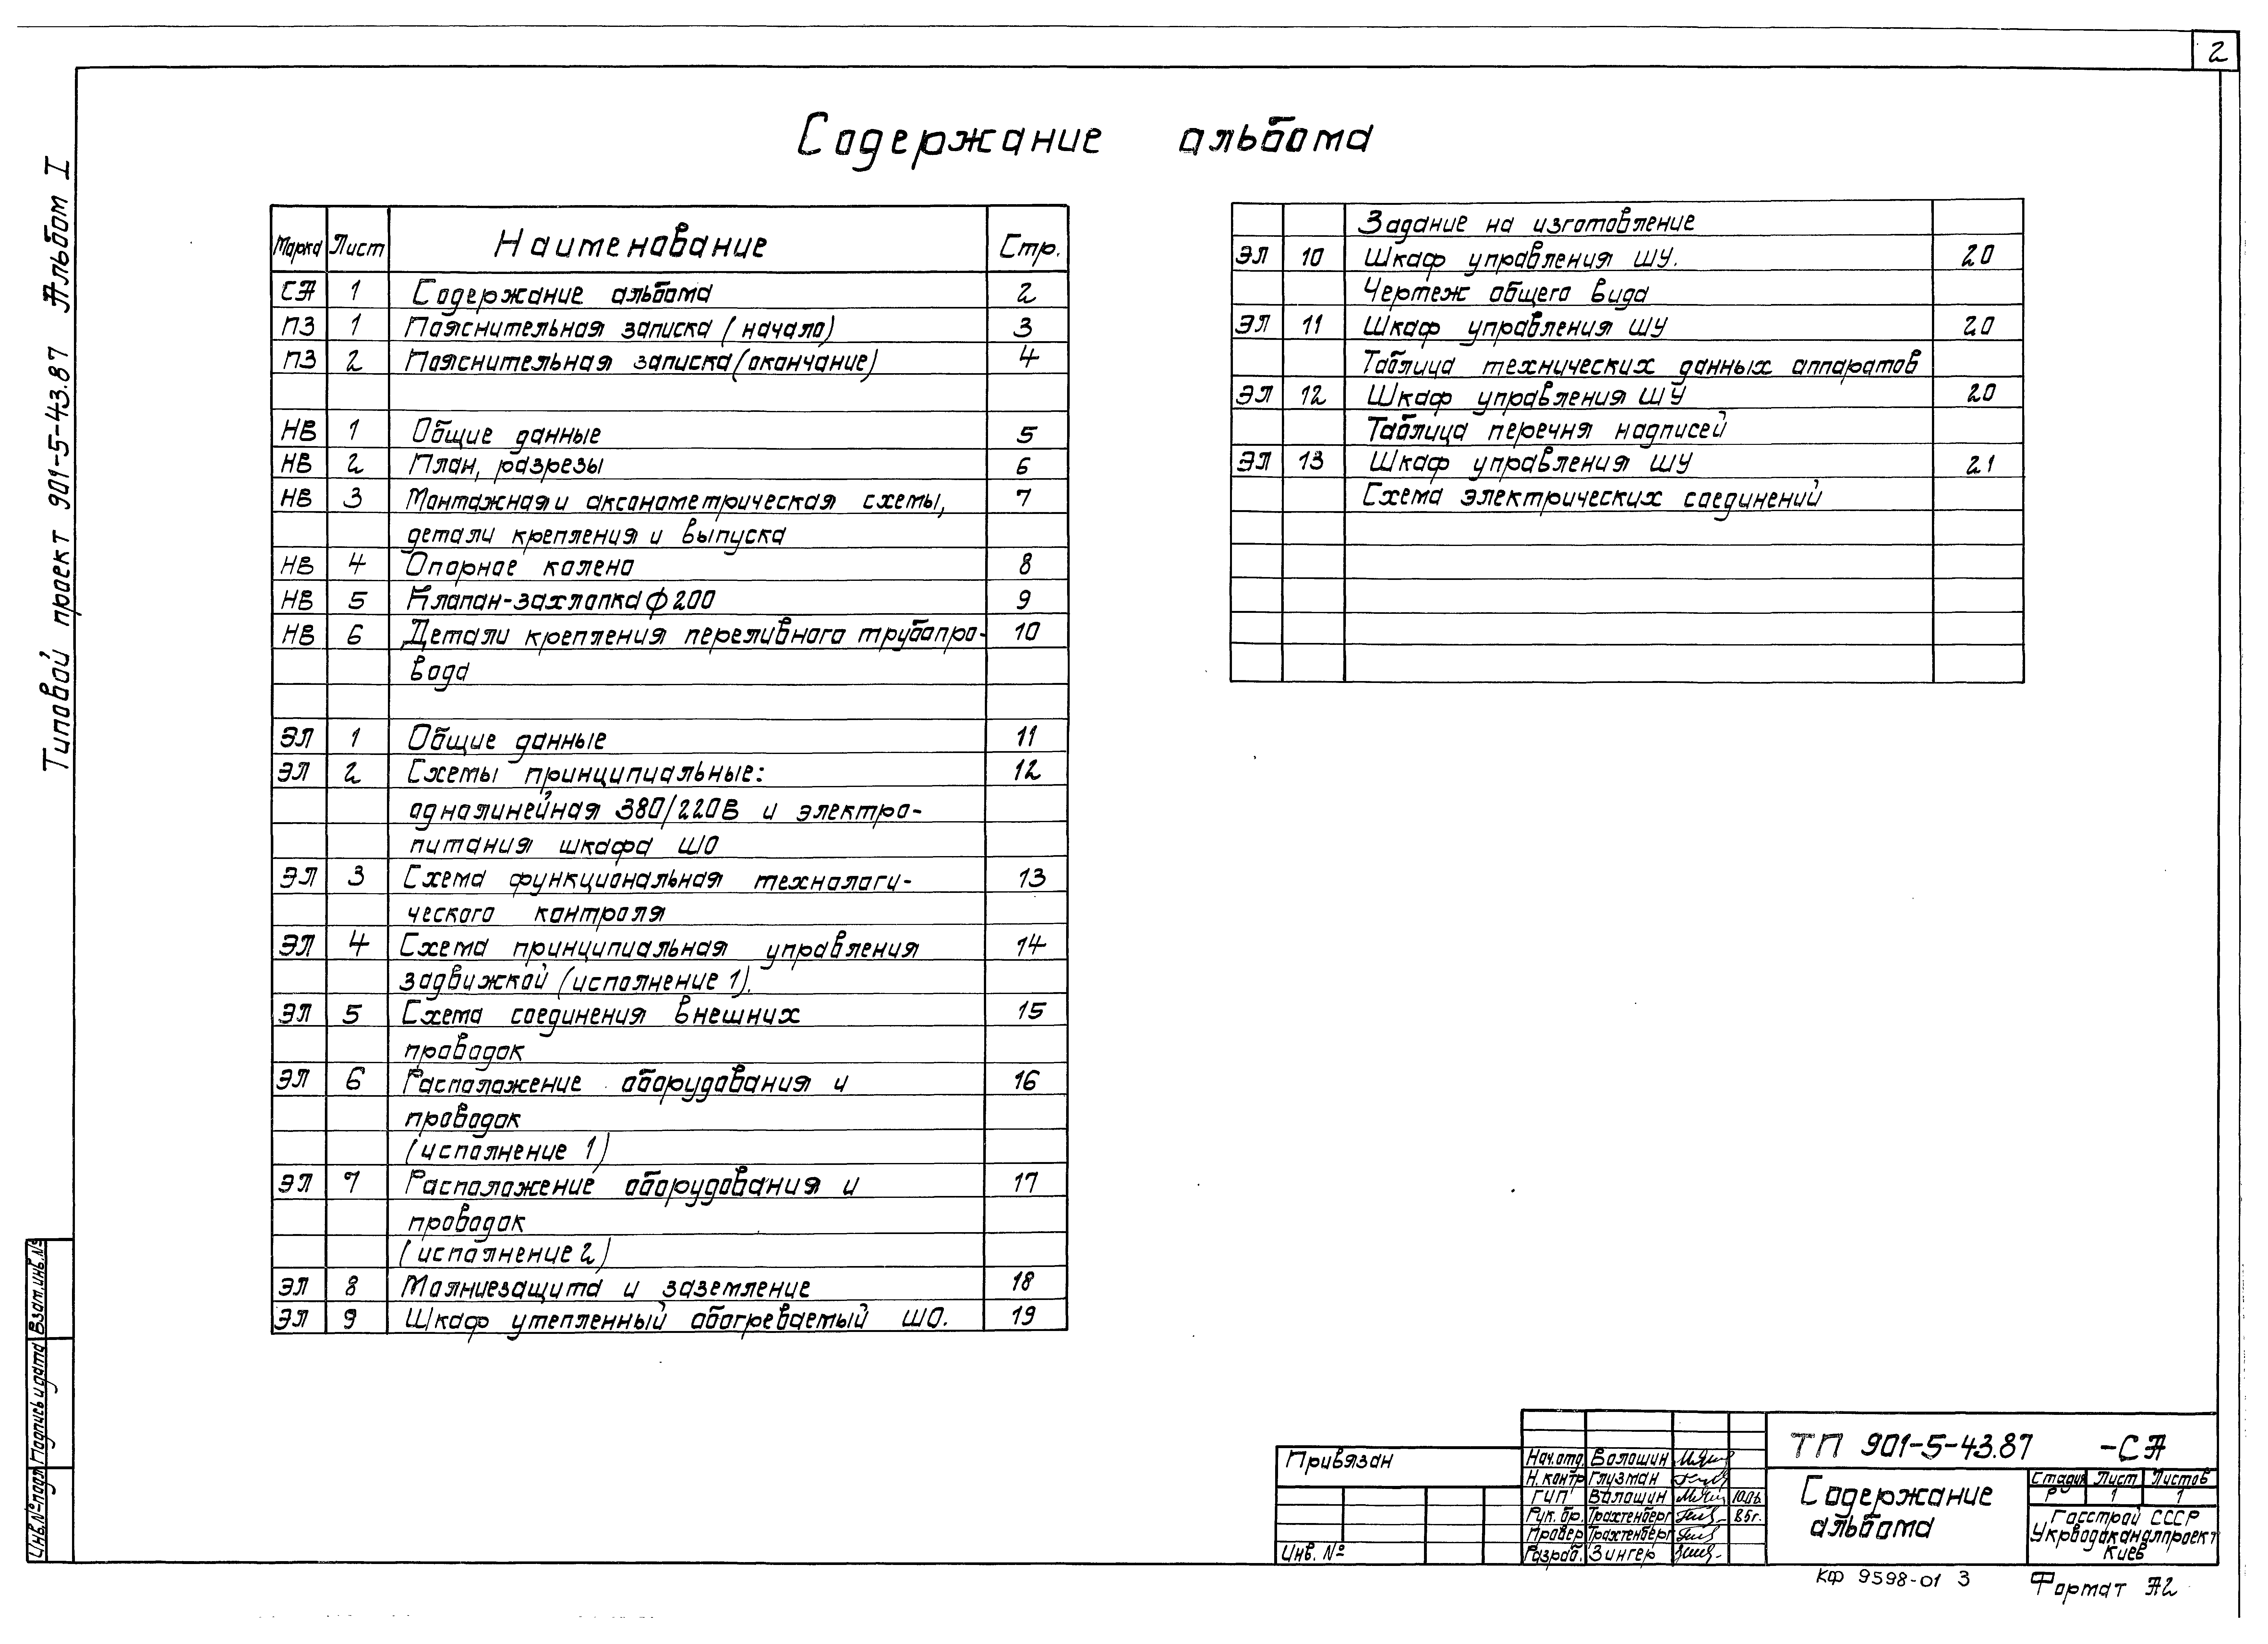 2
Содержание альбома
Типовой проект 901-5-43.87 Альбом I
Марка Лист Наименование Стр.
СА 1 Содержание альбома 2
ПЗ 1 Пояснительная записка (начало) 3
ПЗ 2 Пояснительная записка (окончание) 4
НВ 1 Общие данные 5
НВ 2 План, разрезы 6
НВ 3 Монтажная и аксонометрическая схемы, 7
детали крепления и выпуска
НВ 4 Опорное колено 8
НВ 5 Клапан-захлопка ф 200 9
НВ 6 Детали крепления переливного трубопро- 10
вода
ЭЛ 1 Общие данные 11
ЭЛ 2 Схемы принципиальные: 12
однолинейная 380/220В и электро-
питания шкафа ШО
ЭЛ 3 Схема функциональная технологи- 13
ческого контроля
ЭЛ 4 Схема принципиальная управления 14
задвижкой (исполнение 1).
ЭЛ 5 Схема соединения внешних 15
проводок
ЭЛ 6 Расположение оборудования и 16
проводок
(исполнение 1)
ЭЛ 7 Расположение оборудования и 17
проводок
(исполнение 2)
ЭЛ 8 Молниезащита и заземление 18
ЭЛ 9 Шкаф утепленный обогреваемый ШО. 19
Задание на изготовление
ЭЛ 10 Шкаф управления ШУ. 20
Чертеж общего вида
ЭЛ 11 Шкаф управления ШУ 20
Таблица технических данных аппаратов
ЭЛ 12 Шкаф управления ШУ 20
Таблица перечня надписей
ЭЛ 13 Шкаф управления ШУ 21
Схема электрических соединений
Инв.№подл Подпись и дата Взам.инв.№
Привязан
Инв. №
Нач.отд. Волошин
Н.контр Глизман
ГИП Волошин 10.06.
Рук. бр. Трахтенберг 85г.
Провер Трахтенберг
Разраб. Зингер
ТП 901-5-43.87 -СА
Содержание
альбома
Стадия Лист Листов
Р 1 1
Госстрой СССР
Укрводоканалпроект
Киев
КФ 9598-01 3
Формат А2